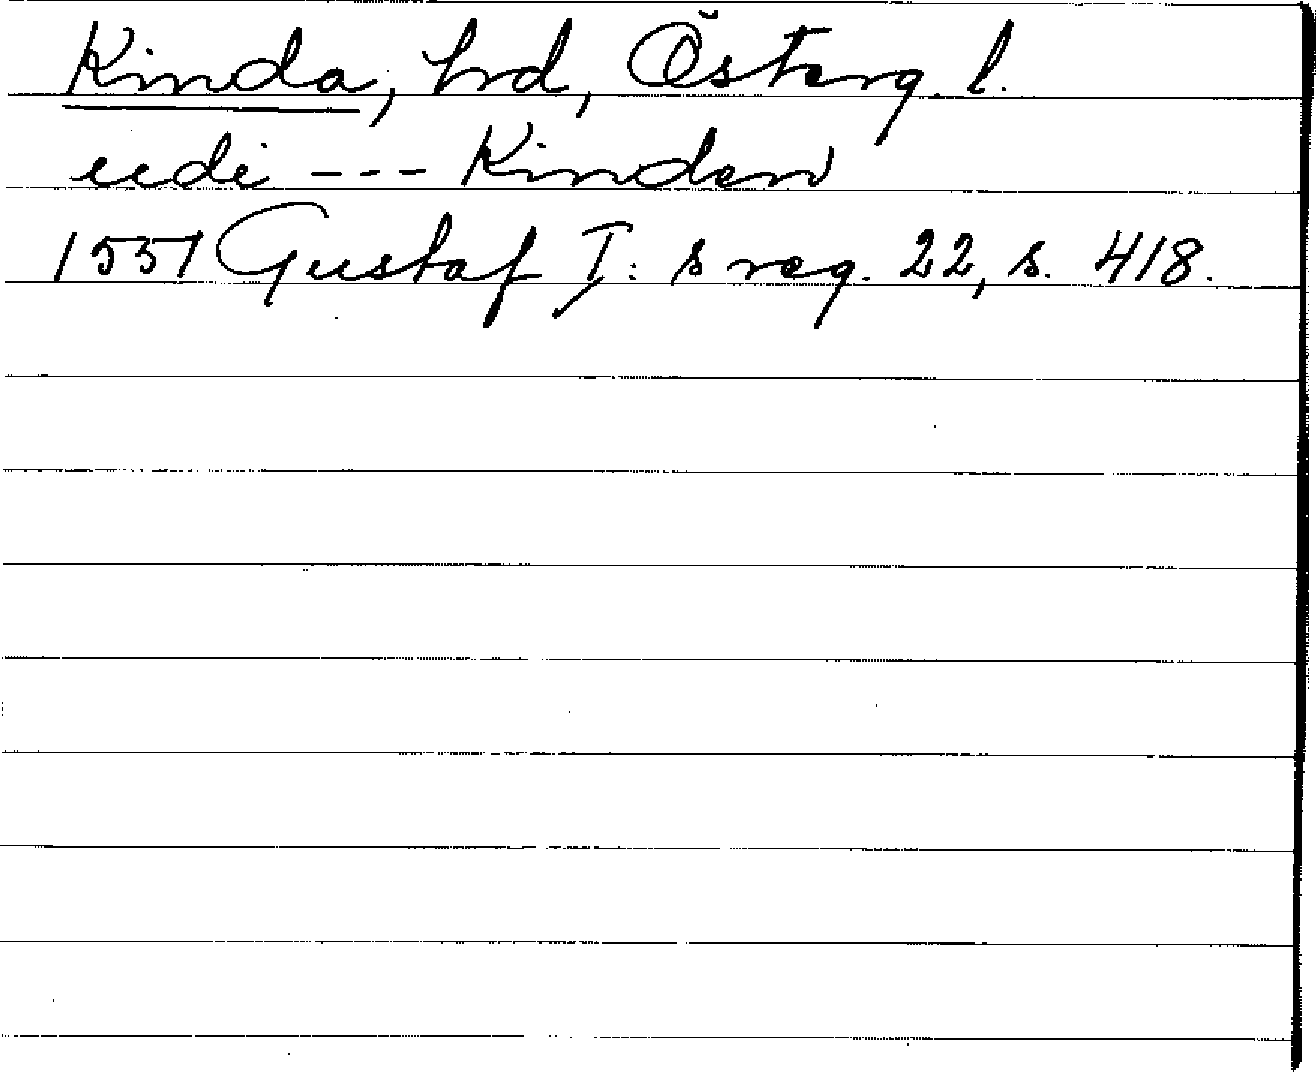 Kinda, hrd, Österg. l.
udi --- Kinden
1551 Gustaf I:s reg. 22, s. 418.